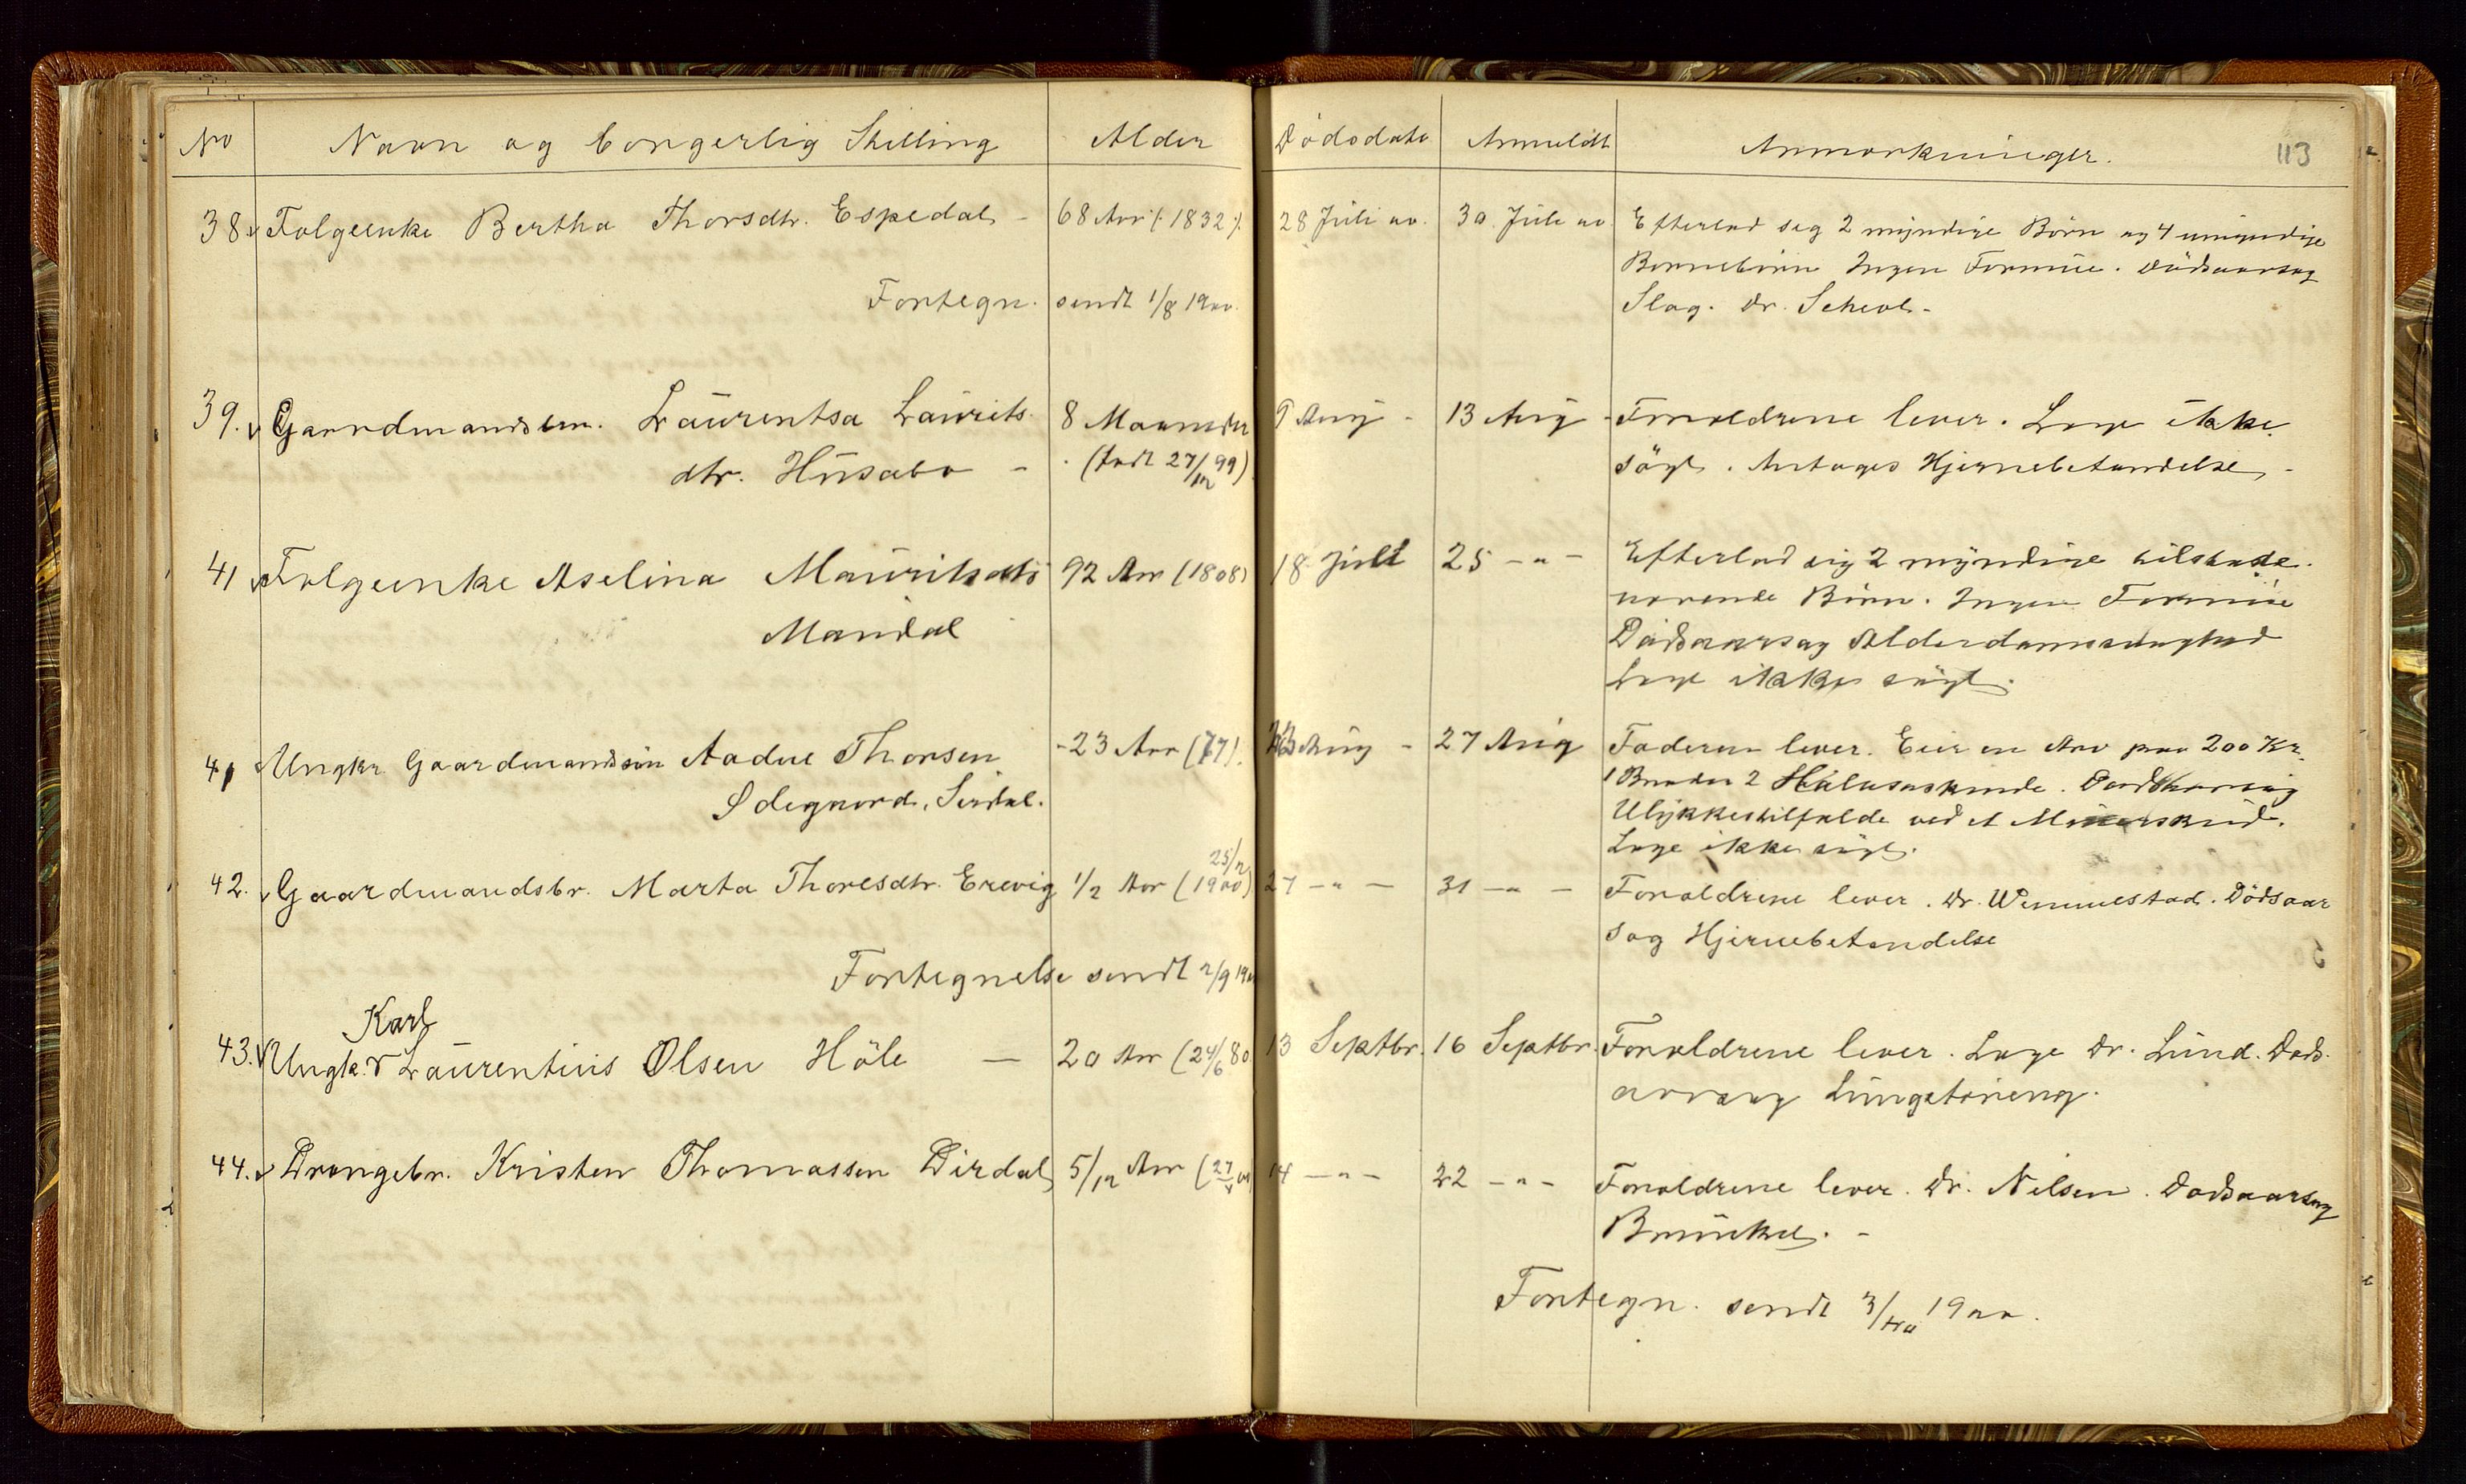 No Navn og borgerlig Stilling Alder Dödsdato Anmeldt Anmærkninger. 113
38. Folgeenke Bertha Thorsdtr. Espedal - 68 Aar /: 1832 :/. 28 Juli 00. 30 Juli 00 Efterlod sig 2 myndige Börn og 4 umyndige
Börnebörn Ingen Formue. Dödsaarsag
Fortegn. sendt 1/8 1900. Slag. Dr. Scheol.-
39. Gaardmandsbr. Laurentsa Laurits 8 Maaneder 9 Aug - 13 Aug - Forældrene lever. Læge ikke
dtr. Husabø - (født 27/12 99) sögt. Antages Hjernebetændelse -
41 Folgeenke Aselina Mauritsdtr 92 Aar (1808) 18 Juli 25 -"- Efterlod sig 2 myndige tilstede
Mandal værende Börn. Ingen Formue
Dödsaarsag Alderdomssvaghed
Læge ikke sögt.
41 Ungkr. Gaardmandssön Aadne Thorsen - 23 Aar (77). 23 Aug - 27 Aug Faderen lever. Eier en Arv paa 200 Kr.
Ödegaard, Sirdal. 1 Broder 2 Halvsöskende. Dödsaarsag
Ulykkestilfælde ved et Minerskud.
Læge ikke sögt.
42. Gaardmandsbr. Marta Thoresdtr. Erevig 1/2 Aar (25/2 1900) 27 -"- 31 -"- Forældrene lever. Dr. Wimmestad. Dödsaar
sag Hjernebetændelse
Fortegnelse sendt 2/9 1900
Karl
43. Ungk. Laurentius Olsen Höle - 20 Aar (24/6 80 13 Septbr. 16 Septbr. Forældrene lever. Læge Dr. Lund. Döds-
aarsag Lungetæring.
44. Drengebr. Kristen Thomassen Dirdal 5/12 Aar (27/4 00) 14 -"- 22 -"- Forældrene lever. Dr. Nilsen. Dödsaarsag
Brunkel. -
Fortegn. sendt 3/10 1900.